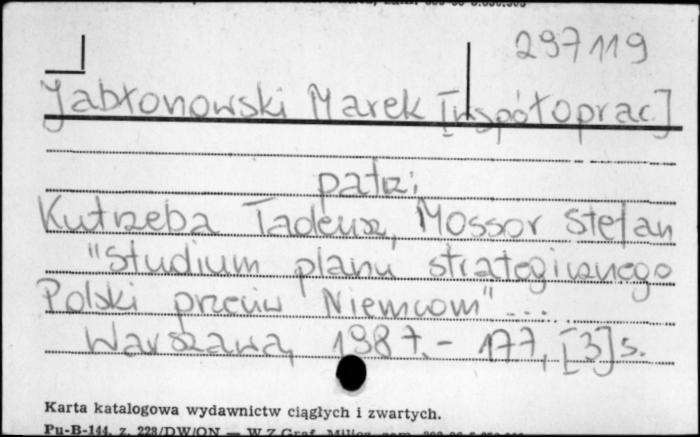 297119
Jabłonowski Marek [współoprac.]
patrz:
Kutrzeba Tadeusz, Mossor Stefan
"Studium planu strategicznego
Polski przeciw Niemcom" ...
Warszawa, 1987. - 177, [3] s.
Karta katalogowa wydawnictw ciągłych i zwartych.
Pu-B-144, z. 228/DW/ON — W.Z.Graf.